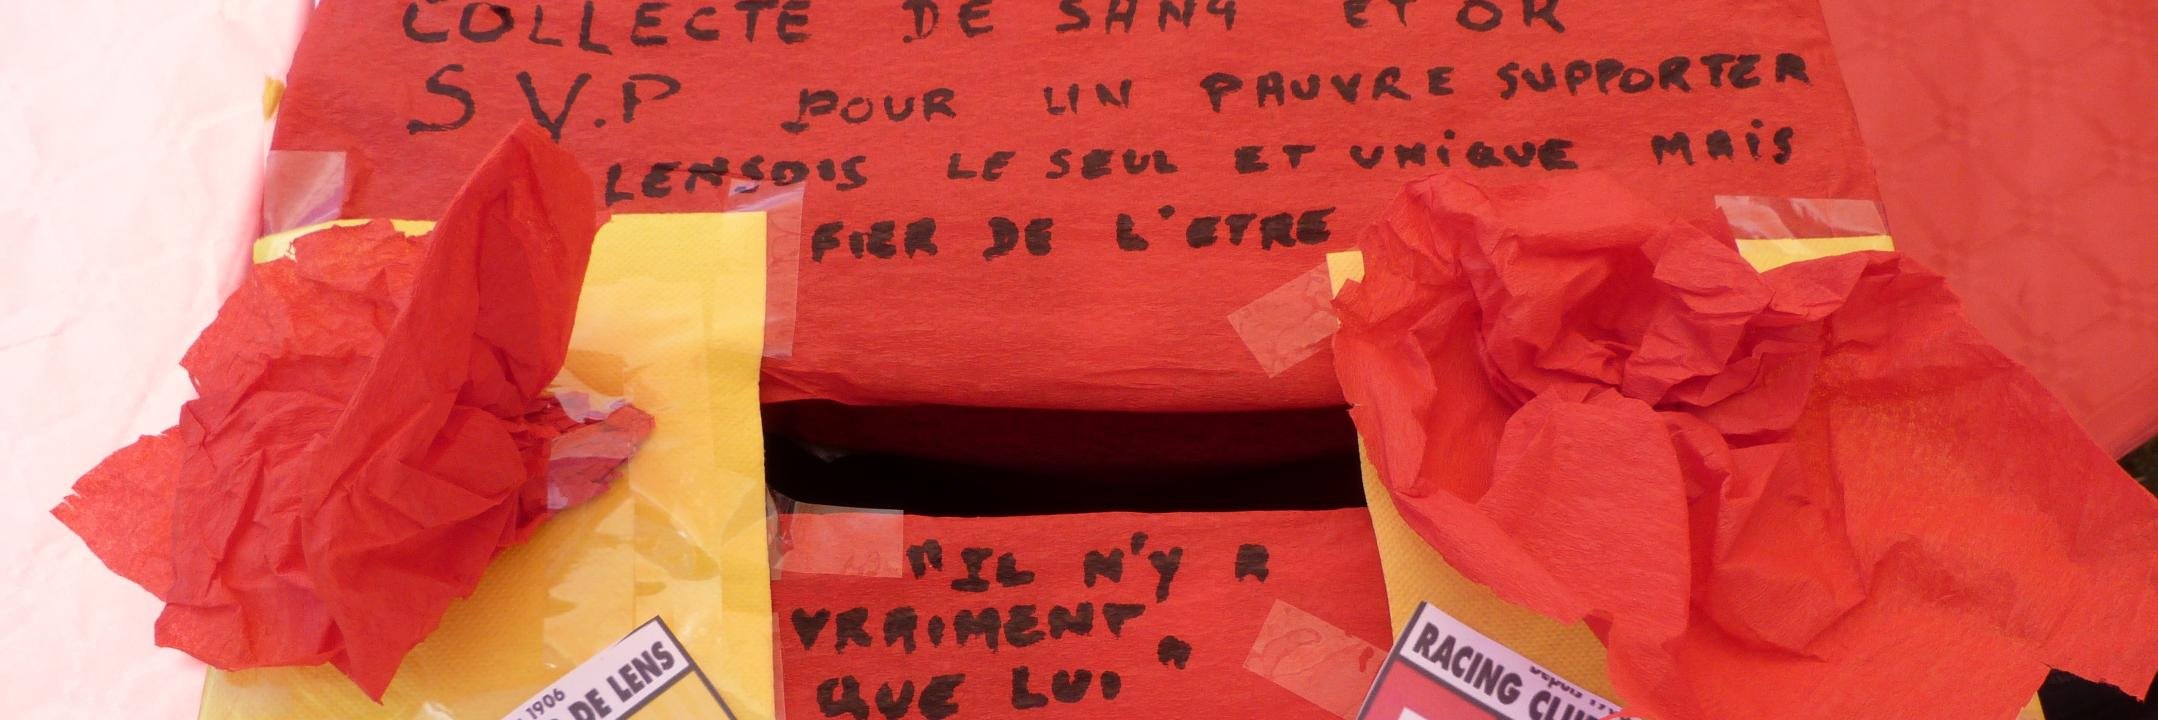 COLLECTE DE SANG ET OR
S.V.P POUR UN PAUVRE SUPPORTER
LENSOIS LE SEUL ET UNIQUE MAIS
FIER DE L'ETRE
"IL N'Y A
VRAIMENT
QUE LUI"
1906
DE LENS
RACING CLUB
Depuis